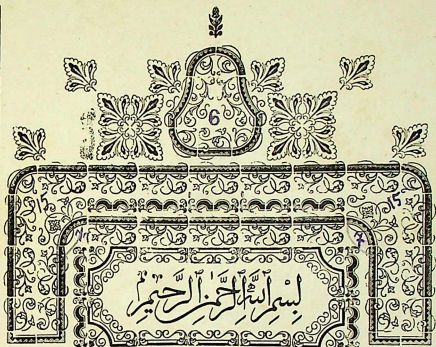 6
15
7
بِسْمِ ٱللّٰهِ ٱلرَّحْمٰنِ ٱلرَّحِيْمِ